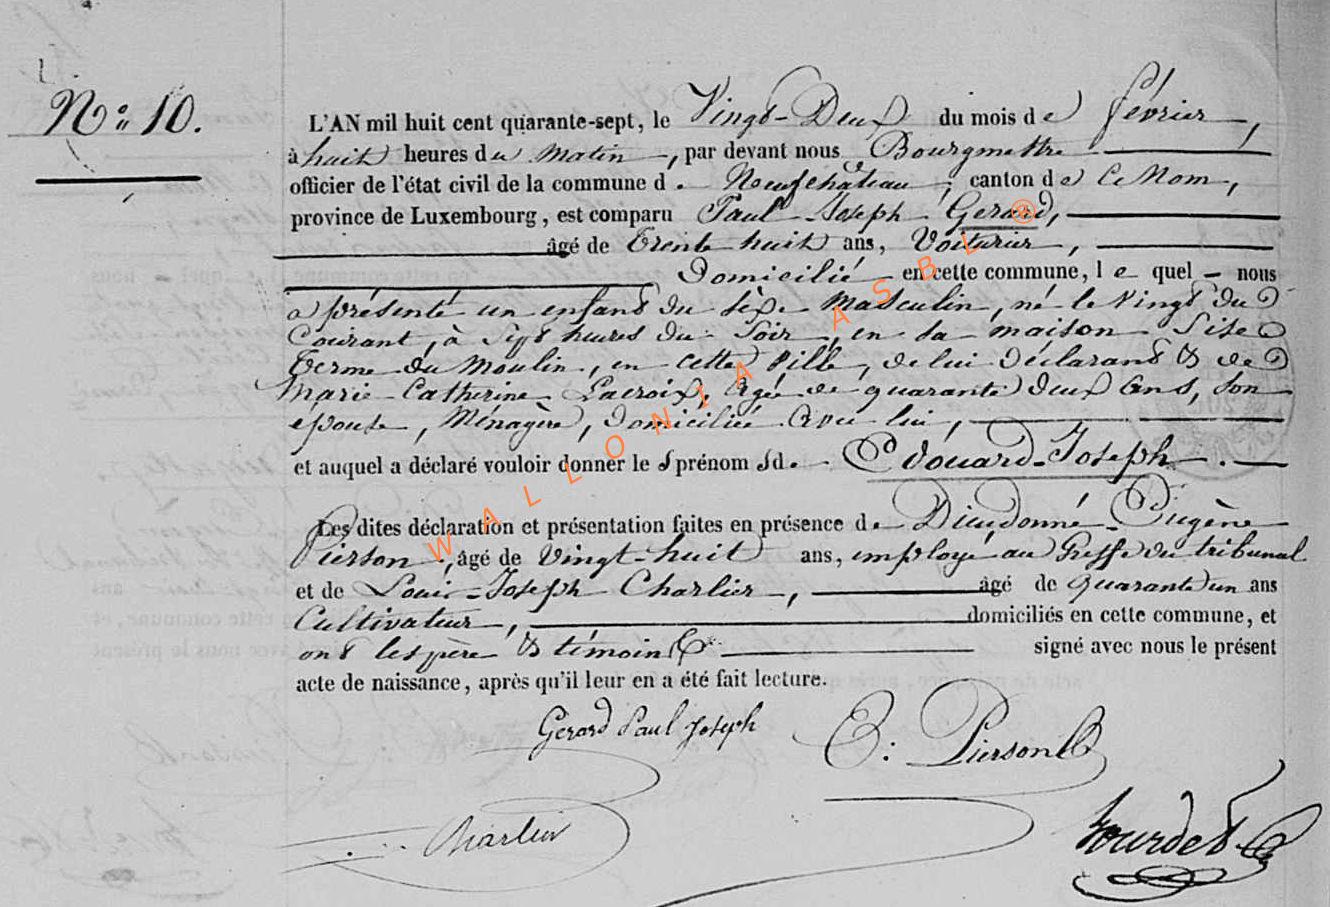 N.° 10.
L'AN mil huit cent quarante-sept, le Vingt-Deux du mois de février,
à huit heures du matin, par devant nous Bourgmestre
officier de l'état civil de la commune d. Neufchâteau, canton de ce Nom,
province de Luxembourg, est comparu Paul Joseph Gerard,
âgé de trente huit ans, Voiturier,
Domicilié en cette commune, le quel nous
a présenté un enfant du sèxe masculin, né le vingt du
Courant, à Sept heures du Soir, en sa maison Sise
terme du Moulin, en cette Ville, de lui déclarant & de
Marie Catherine Lacroix, Agée de quarante deux Ans, son
épouse, Ménagère, domiciliée avec lui,
et auquel a déclaré vouloir donner les prénoms d. Edouard-Joseph.
Les dites déclaration et présentation faites en présence de Dieudonné-Eugène
Pierson, âgé de vingt-huit ans, employé au Greffe du tribunal
et de Louis-Joseph Charlier, âgé de quarante un ans
Cultivateur, domiciliés en cette commune, et
ont les père & témoins signé avec nous le présent
acte de naissance, après qu'il leur en a été fait lecture.
Gerard Paul Joseph
E: Pierson
Charlier
WALLONIA ASBL ®